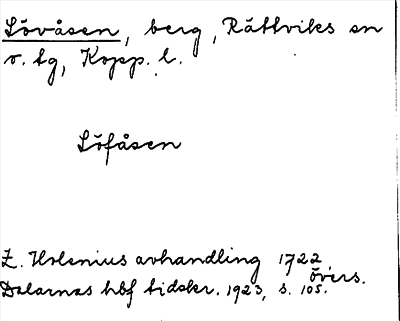 Lövåsen, berg, Rättviks sn
o. tg, Kopp. l.
Löfåsen
Z. Holenius avhandling 1722,
övers.
Dalarnas hbf tidskr. 1923, s. 105.